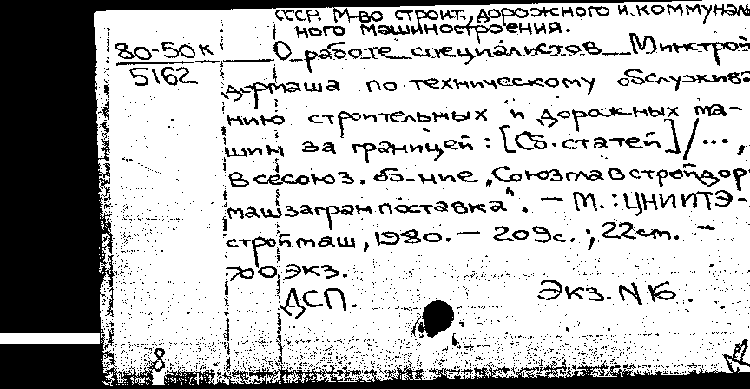 СССР. М-во строит., дорожного и коммуналь
ного машиностроения.
80-50к
5162
О работе специалистов Минстрой
дормаша по техническому обслужива
нию строительных и дорожных ма-
шин за границей: [Сб. статей] / ...,
Всесоюз. об-ние „Союзглавстройдор
машзагранпоставка". — М.: ЦНИИТЭ-
строймаш, 1980. — 209с.; 22см. —
700 экз.
ДСП.
Экз. N 16.
8